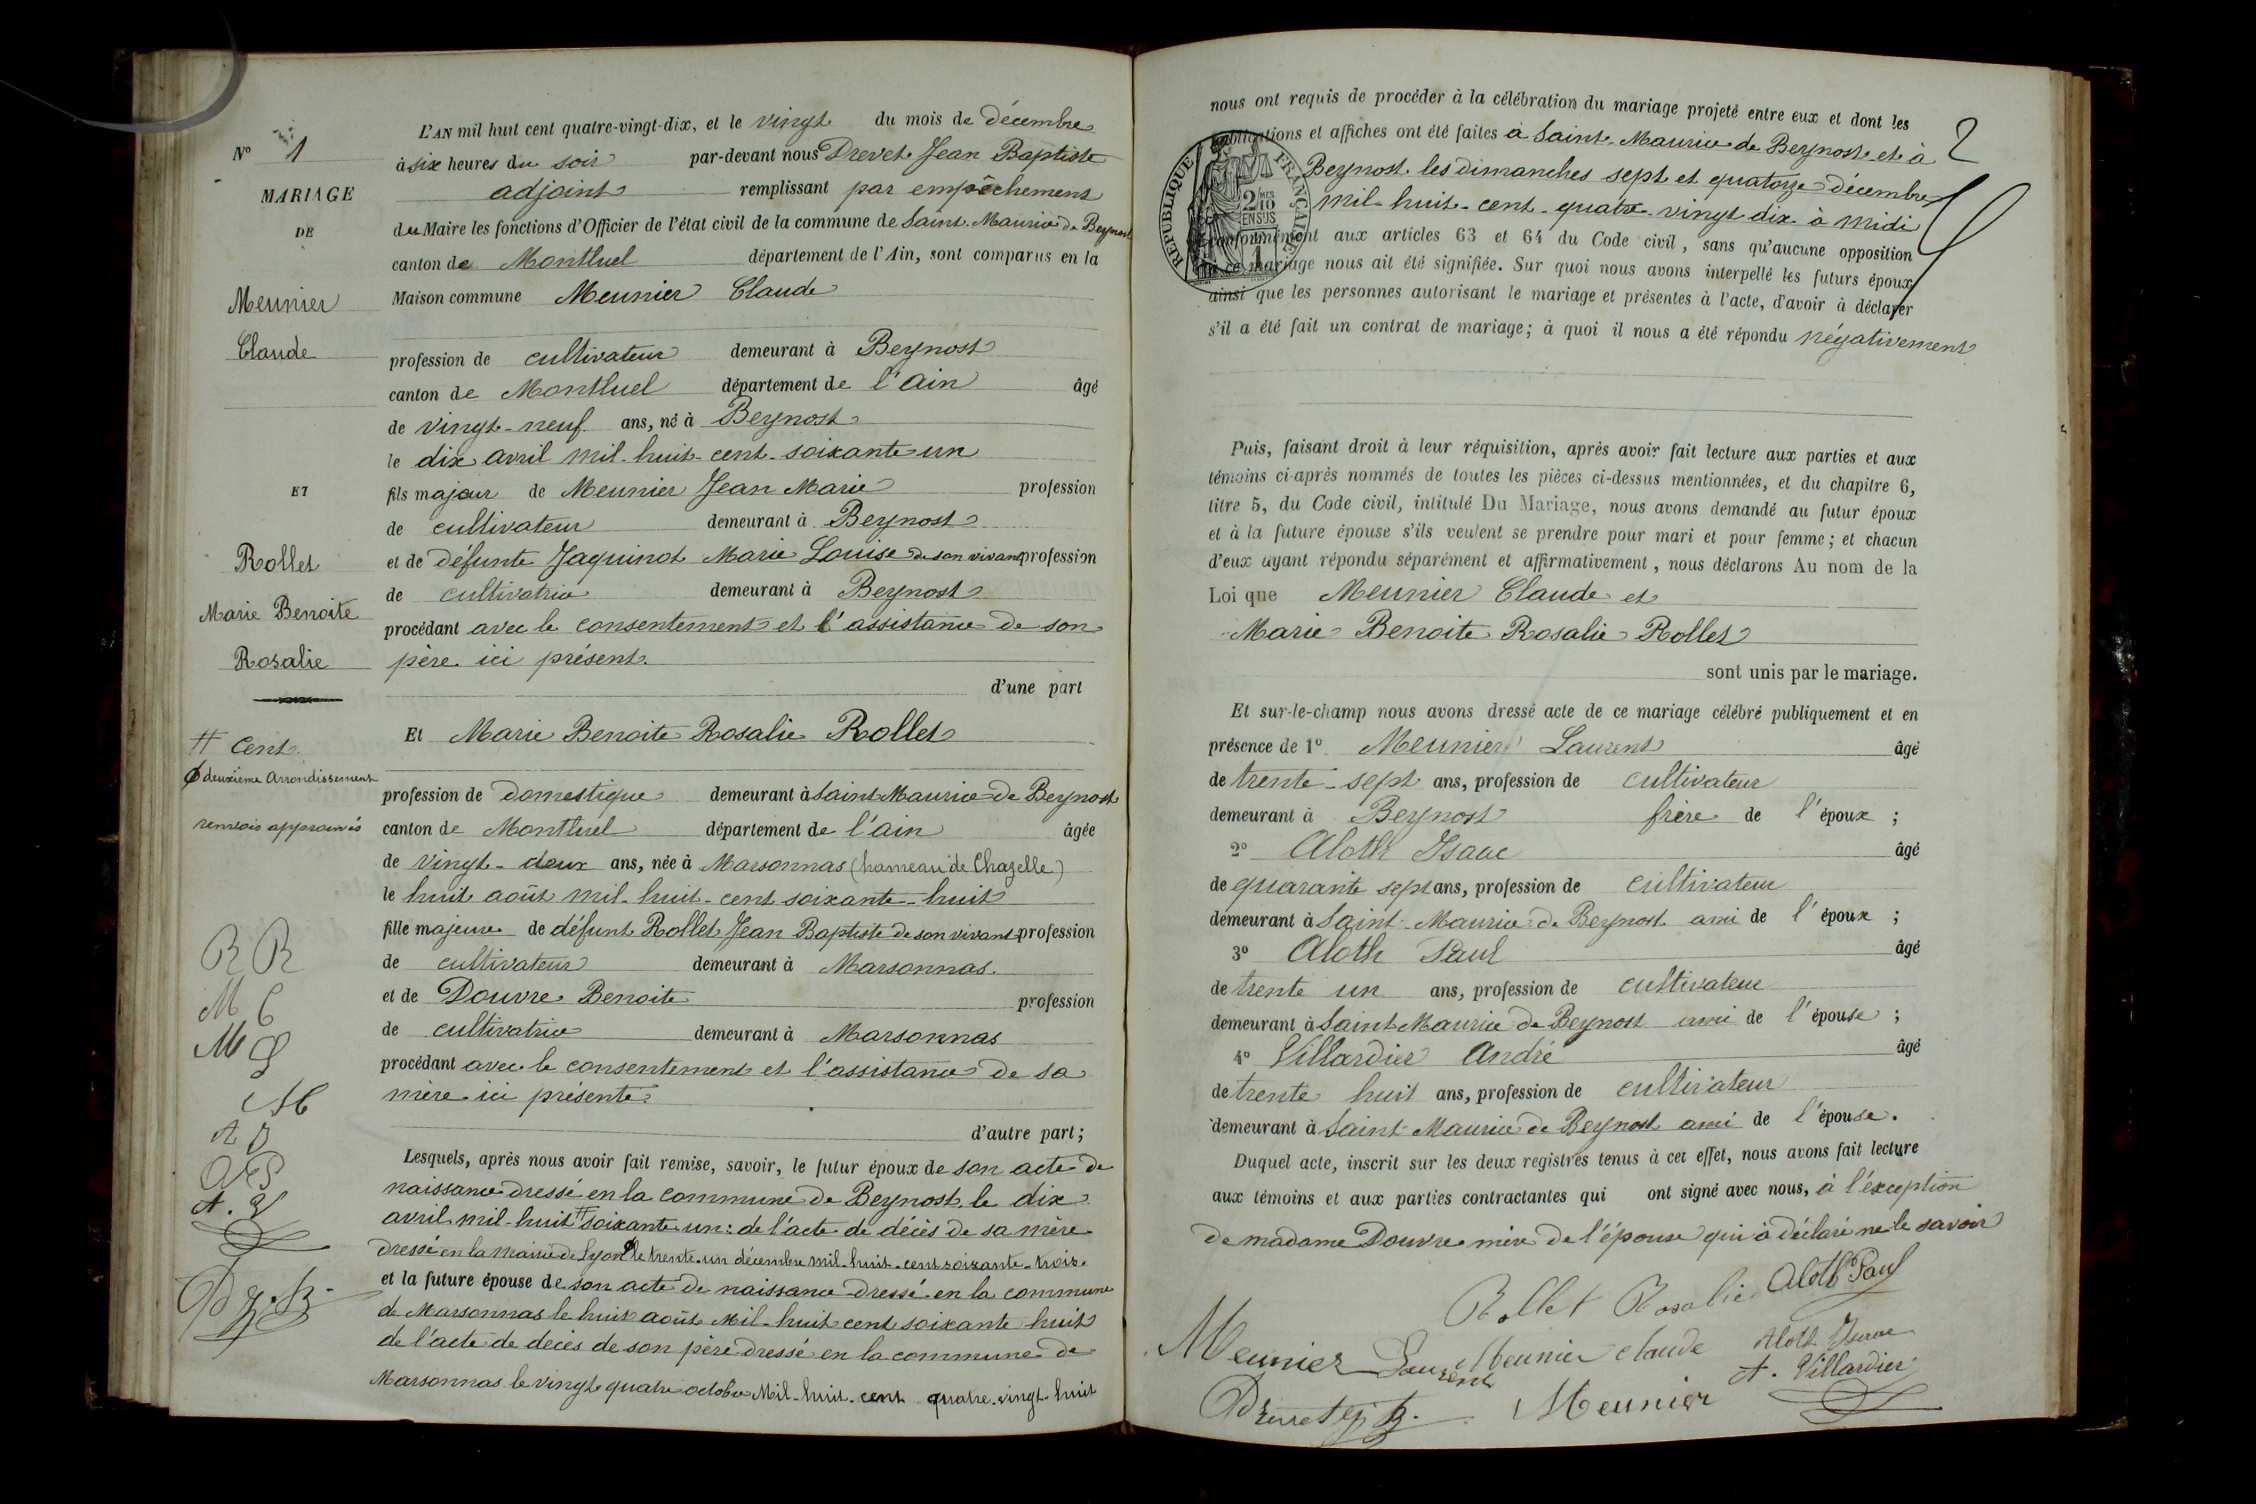 L'AN mil huit cent quatre-vingt-dix, et le vingt du mois de décembre
N° 1
à six heures du soir par-devant nous Drevet Jean Baptiste
adjoint remplissant par empêchement
MARIAGE
DE
du Maire les fonctions d'Officier de l'état civil de la commune de Saint-Maurice de Beynost
canton de Montluel département de l'Ain, sont comparus en la
Meunier
Claude
Maison commune Meunier Claude
profession de cultivateur demeurant à Beynost
canton de Montluel département de l'ain âgé
de vingt-neuf ans, né à Beynost
le dix avril mil-huit-cent-soixante-un
ET
fils majeur de Meunier Jean Marie profession
de cultivateur demeurant à Beynost
Rollet
Marie Benoite
Rosalie
et de défunte Jaquinot Marie Louise de son vivant profession
de cultivatrice demeurant à Beynost
procédant avec le consentement et l'assistance de son
père ici présent.
d'une part
# cent.
ϕ deuxième Arrondissement
renvois approuvés
Et Marie Benoite Rosalie Rollet
profession de domestique demeurant à Saint Maurice de Beynost
canton de Montluel département de l'ain âgée
de vingt-deux ans, née à Marsonnas (hameau de Chazelle)
le huit août mil-huit-cent soixante-huit
fille majeure de défunt Rollet Jean Baptiste de son vivant profession
de cultivateur demeurant à Marsonnas.
et de Douvre Benoite profession
de cultivatrice demeurant à Marsonnas
procédant avec le consentement et l'assistance de sa
mère ici présente.
d'autre part;
R R
M C
M L
M
A V
Lesquels, après nous avoir fait remise, savoir, le futur époux de son acte de
naissance dressé en la commune de Beynost le dix
avril mil-huit # soixante-un: de l'acte de décès de sa mère
dressé en la mairie de Lyon ϕ le trente-un décembre mil-huit-cent soixante-trois.
et la future épouse de son acte de naissance dressé en la commune
de Marsonnas le huit août Mil-huit cent soixante huit
de l'acte de décès de son père dressé en la commune de
Marsonnas le vingt quatre octobre Mil-huit-cent quatre-vingt-huit
2
nous ont requis de procéder à la célébration du mariage projeté entre eux et dont les
publications et affiches ont été faites à Saint-Maurice de Beynost et à
Beynost les dimanches sept et quatorze décembre
mil-huit-cent-quatre-vingt dix à midi
conformément aux articles 63 et 64 du Code civil, sans qu'aucune opposition
à ce mariage nous ait été signifiée. Sur quoi nous avons interpellé les futurs époux
ainsi que les personnes autorisant le mariage et présentes à l'acte, d'avoir à déclarer
s'il a été fait un contrat de mariage; à quoi il nous a été répondu négativement
REPUBLIQUE FRANÇAISE
2/10
EN SUS
1
Puis, faisant droit à leur réquisition, après avoir fait lecture aux parties et aux
témoins ci-après nommés de toutes les pièces ci-dessus mentionnées, et du chapitre 6,
titre 5, du Code civil, intitulé Du Mariage, nous avons demandé au futur époux
et à la future épouse s'ils veulent se prendre pour mari et pour femme; et chacun
d'eux ayant répondu séparément et affirmativement, nous déclarons Au nom de la
Loi que Meunier Claude et
Marie Benoite Rosalie Rollet
sont unis par le mariage.
Et sur-le-champ nous avons dressé acte de ce mariage célébré publiquement et en
présence de 1° Meunier Laurent âgé
de trente-sept ans, profession de cultivateur
demeurant à Beynost frère de l'époux;
2° Aloth Isaac âgé
de quarante sept ans, profession de cultivateur
demeurant à Saint-Maurice de Beynost ami de l'époux;
3° Aloth Paul âgé
de trente un ans, profession de cultivateur
demeurant à Saint Maurice de Beynost ami de l'épouse;
4° Villardier André âgé
de trente huit ans, profession de cultivateur
demeurant à Saint-Maurice de Beynost ami de l'épouse.
Duquel acte, inscrit sur les deux registres tenus à cet effet, nous avons fait lecture
aux témoins et aux parties contractantes qui ont signé avec nous, à l'exception
de madame Douvre mère de l'épouse qui à déclaré ne le savoir
Rollet Rosalie Aloth Paul
Meunier Laurent Meunier Claude Aloth
A. Villardier
Meunier